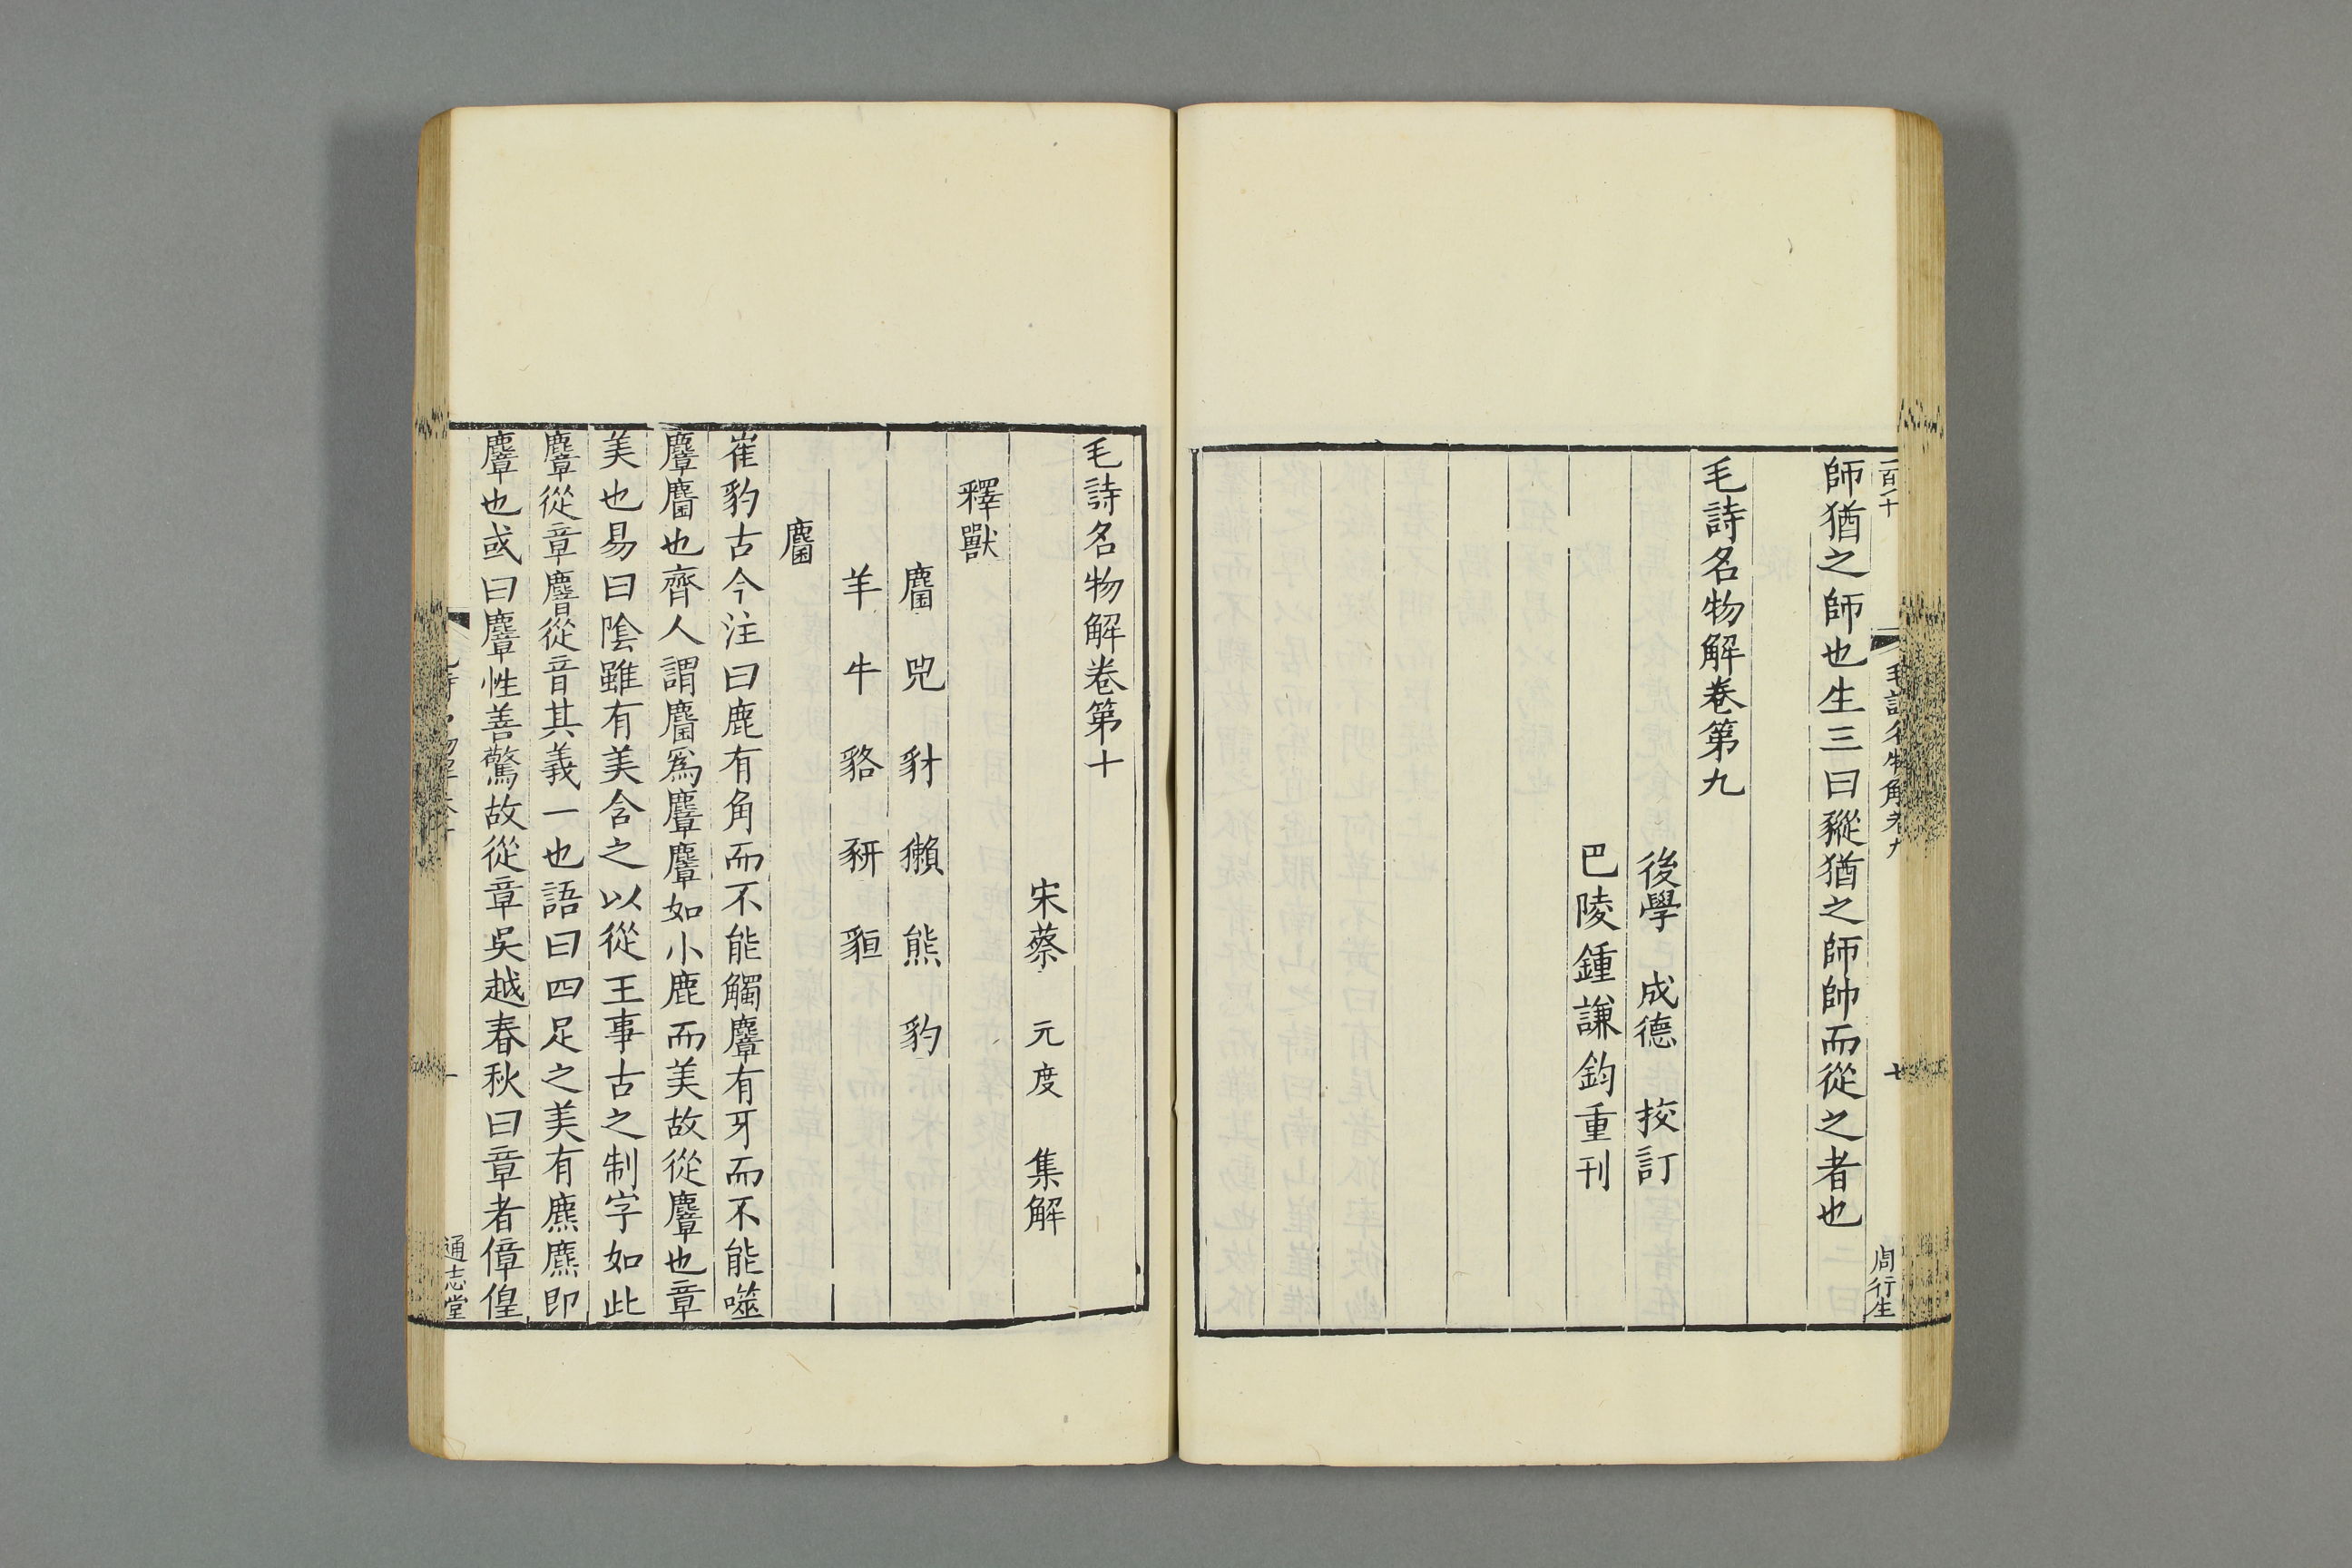 一百千
毛詩名物解卷九
七
周行生
師猶之師也生三曰豵猶之師帥而從之者也
毛詩名物解卷第九
後學 成德 挍訂
巴陵鍾謙鈞重刊
毛詩名物解卷第十
宋蔡 元度 集解
釋獸
麕 兕 豺 獺 熊 豹
羊 牛 貉 豣 貆
麕
崔豹古今注曰鹿有角而不能觸麞有牙而不能噬
麞麕也齊人謂麕爲麞麞如小鹿而美故從麞也章
美也易曰陰雖有美含之以從王事古之制字如此
麞從章麏從音其義一也語曰四足之美有麃麃即
麞也或曰麞性善驚故從章吳越春秋曰章者傽偟
一
通志堂